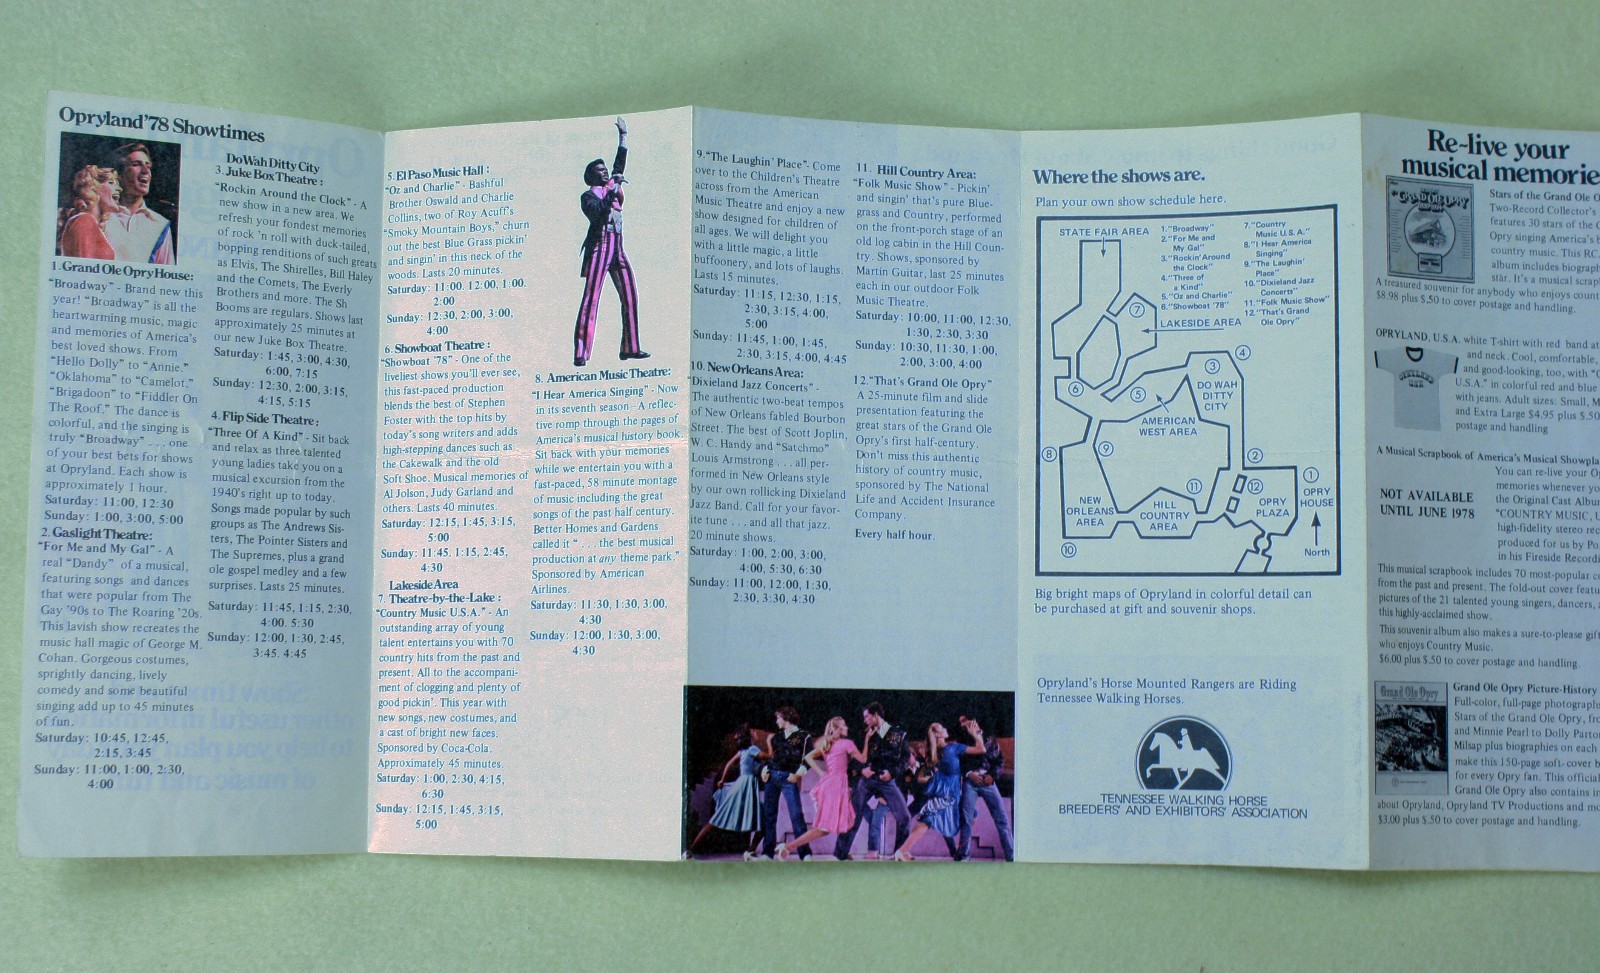 Opryland'78 Showtimes
1. Grand Ole Opry House:
"Broadway" - Brand new this
year! "Broadway" is all the
heartwarming music, magic
and memories of America's
best loved shows. From
"Hello Dolly" to "Annie."
"Oklahoma" to "Camelot,"
"Brigadoon" to "Fiddler On
The Roof," The dance is
colorful, and the singing is
truly "Broadway" . . . one
of your best bets for shows
at Opryland. Each show is
approximately 1 hour.
Saturday: 11:00, 12:30
Sunday: 1:00, 3:00, 5:00
2. Gaslight Theatre:
"For Me and My Gal" - A
real "Dandy" of a musical,
featuring songs and dances
that were popular from The
Gay '90s to The Roaring '20s.
This lavish show recreates the
music hall magic of George M.
Cohan. Gorgeous costumes,
sprightly dancing, lively
comedy and some beautiful
singing add up to 45 minutes
of fun.
Saturday: 10:45, 12:45,
2:15, 3:45
Sunday: 11:00, 1:00, 2:30,
4:00
Do Wah Ditty City
3. Juke Box Theatre:
"Rockin Around the Clock" - A
new show in a new area. We
refresh your fondest memories
of rock 'n roll with duck-tailed,
bopping renditions of such greats
as Elvis, The Shirelles, Bill Haley
and the Comets, The Everly
Brothers and more. The Sh
Booms are regulars. Shows last
approximately 25 minutes at
our new Juke Box Theatre.
Saturday: 1:45, 3:00, 4:30,
6:00, 7:15
Sunday: 12:30, 2:00, 3:15,
4:15, 5:15
4. Flip Side Theatre:
"Three Of A Kind" - Sit back
and relax as three talented
young ladies take you on a
musical excursion from the
1940's right up to today.
Songs made popular by such
groups as The Andrews Sis-
ters, The Pointer Sisters and
The Supremes, plus a grand
ole gospel medley and a few
surprises. Lasts 25 minutes.
Saturday: 11:45, 1:15, 2:30,
4:00. 5:30
Sunday: 12:00, 1:30, 2:45,
3:45. 4:45
5. El Paso Music Hall:
"Oz and Charlie" - Bashful
Brother Oswald and Charlie
Collins, two of Roy Acuff's
"Smoky Mountain Boys," churn
out the best Blue Grass pickin'
and singin' in this neck of the
woods. Lasts 20 minutes.
Saturday: 11:00. 12:00, 1:00.
2:00
Sunday: 12:30, 2:00, 3:00,
4:00
6. Showboat Theatre:
"Showboat '78" - One of the
liveliest shows you'll ever see,
this fast-paced production
blends the best of Stephen
Foster with the top hits by
today's song writers and adds
high-stepping dances such as
the Cakewalk and the old
Soft Shoe. Musical memories of
Al Jolson, Judy Garland and
others. Lasts 40 minutes.
Saturday: 12:15, 1:45, 3:15,
5:00
Sunday: 11:45. 1:15, 2:45,
4:30
Lakeside Area
7. Theatre-by-the-Lake:
"Country Music U.S.A." - An
outstanding array of young
talent entertains you with 70
country hits from the past and
present. All to the accompani-
ment of clogging and plenty of
good pickin'. This year with
new songs, new costumes, and
a cast of bright new faces.
Sponsored by Coca-Cola.
Approximately 45 minutes.
Saturday: 1:00, 2:30, 4:15,
6:30
Sunday: 12:15, 1:45, 3:15,
5:00
8. American Music Theatre:
"I Hear America Singing" - Now
in its seventh season - A reflec-
tive romp through the pages of
America's musical history book.
Sit back with your memories
while we entertain you with a
fast-paced, 58 minute montage
of music including the great
songs of the past half century.
Better Homes and Gardens
called it " . . . the best musical
production at any theme park."
Sponsored by American
Airlines.
Saturday: 11:30, 1:30, 3:00,
4:30
Sunday: 12:00, 1:30, 3:00,
4:30
9. "The Laughin' Place" - Come
over to the Children's Theatre
across from the American
Music Theatre and enjoy a new
show designed for children of
all ages. We will delight you
with a little magic, a little
buffoonery, and lots of laughs.
Lasts 15 minutes.
Saturday: 11:15, 12:30, 1:15,
2:30, 3:15, 4:00,
5:00
Sunday: 11:45, 1:00, 1:45,
2:30, 3:15, 4:00, 4:45
10. New Orleans Area:
"Dixieland Jazz Concerts" -
The authentic two-beat tempos
of New Orleans fabled Bourbon
Street. The best of Scott Joplin,
W. C. Handy and "Satchmo"
Louis Armstrong . . . all per-
formed in New Orleans style
by our own rollicking Dixieland
Jazz Band. Call for your favor-
ite tune . . . and all that jazz.
20 minute shows.
Saturday: 1:00, 2:00, 3:00,
4:00, 5:30, 6:30
Sunday: 11:00, 12:00, 1:30,
2:30, 3:30, 4:30
11. Hill Country Area:
"Folk Music Show" - Pickin'
and singin' that's pure Blue-
grass and Country, performed
on the front-porch stage of an
old log cabin in the Hill Coun-
try. Shows, sponsored by
Martin Guitar, last 25 minutes
each in our outdoor Folk
Music Theatre.
Saturday: 10:00, 11:00, 12:30,
1:30, 2:30, 3:30
Sunday: 10:30, 11:30, 1:00,
2:00, 3:00, 4:00
12. "That's Grand Ole Opry"
A 25-minute film and slide
presentation featuring the
great stars of the Grand Ole
Opry's first half-century.
Don't miss this authentic
history of country music,
sponsored by The National
Life and Accident Insurance
Company.
Every half hour.
Where the shows are.
Plan your own show schedule here.
STATE FAIR AREA
1. "Broadway"
2. "For Me and
My Gal"
3. "Rockin' Around
the Clock"
4. "Three of
a Kind"
5. "Oz and Charlie"
6. "Showboat '78"
7. "Country
Music U.S.A."
8. "I Hear America
Singing"
9. "The Laughin'
Place"
10. "Dixieland Jazz
Concerts"
11. "Folk Music Show"
12. "That's Grand
Ole Opry"
7
LAKESIDE AREA
4
3
6
5
DO WAH
DITTY
CITY
AMERICAN
WEST AREA
8
9
2
1
11
12
OPRY
HOUSE
NEW
ORLEANS
AREA
HILL
COUNTRY
AREA
OPRY
PLAZA
10
North
Big bright maps of Opryland in colorful detail can
be purchased at gift and souvenir shops.
Opryland's Horse Mounted Rangers are Riding
Tennessee Walking Horses.
TENNESSEE WALKING HORSE
BREEDERS' AND EXHIBITORS' ASSOCIATION
Re-live your
musical memorie
Stars of the Grand Ole O
Two-Record Collector's
features 30 stars of the G
Opry singing America's b
country music. This RC
album includes biograph
star. It's a musical scrap
A treasured souvenir for anybody who enjoys count
$8.98 plus $.50 to cover postage and handling.
OPRYLAND, U.S.A. white T-shirt with red band at
and neck. Cool, comfortable,
and good-looking, too, with "O
U.S.A." in colorful red and blue
with jeans. Adult sizes: Small, M
and Extra Large $4.95 plus $.50
postage and handling
A Musical Scrapbook of America's Musical Showpla
You can re-live your Op
memories whenever yo
the Original Cast Album
"COUNTRY MUSIC, U
high-fidelity stereo rec
produced for us by Po
in his Fireside Recordi
NOT AVAILABLE
UNTIL JUNE 1978
This musical scrapbook includes 70 most-popular co
from the past and present. The fold-out cover featu
pictures of the 21 talented young singers, dancers, a
this highly-acclaimed show.
This souvenir album also makes a sure-to-please gift
who enjoys Country Music.
$6.00 plus $.50 to cover postage and handling.
Grand Ole Opry
Grand Ole Opry Picture-History
Full-color, full-page photographs
Stars of the Grand Ole Opry, fro
and Minnie Pearl to Dolly Parton
Milsap plus biographies on each
make this 150-page soft-cover b
for every Opry fan. This official
Grand Ole Opry also contains in
about Opryland, Opryland TV Productions and mo
$3.00 plus $.50 to cover postage and handling.